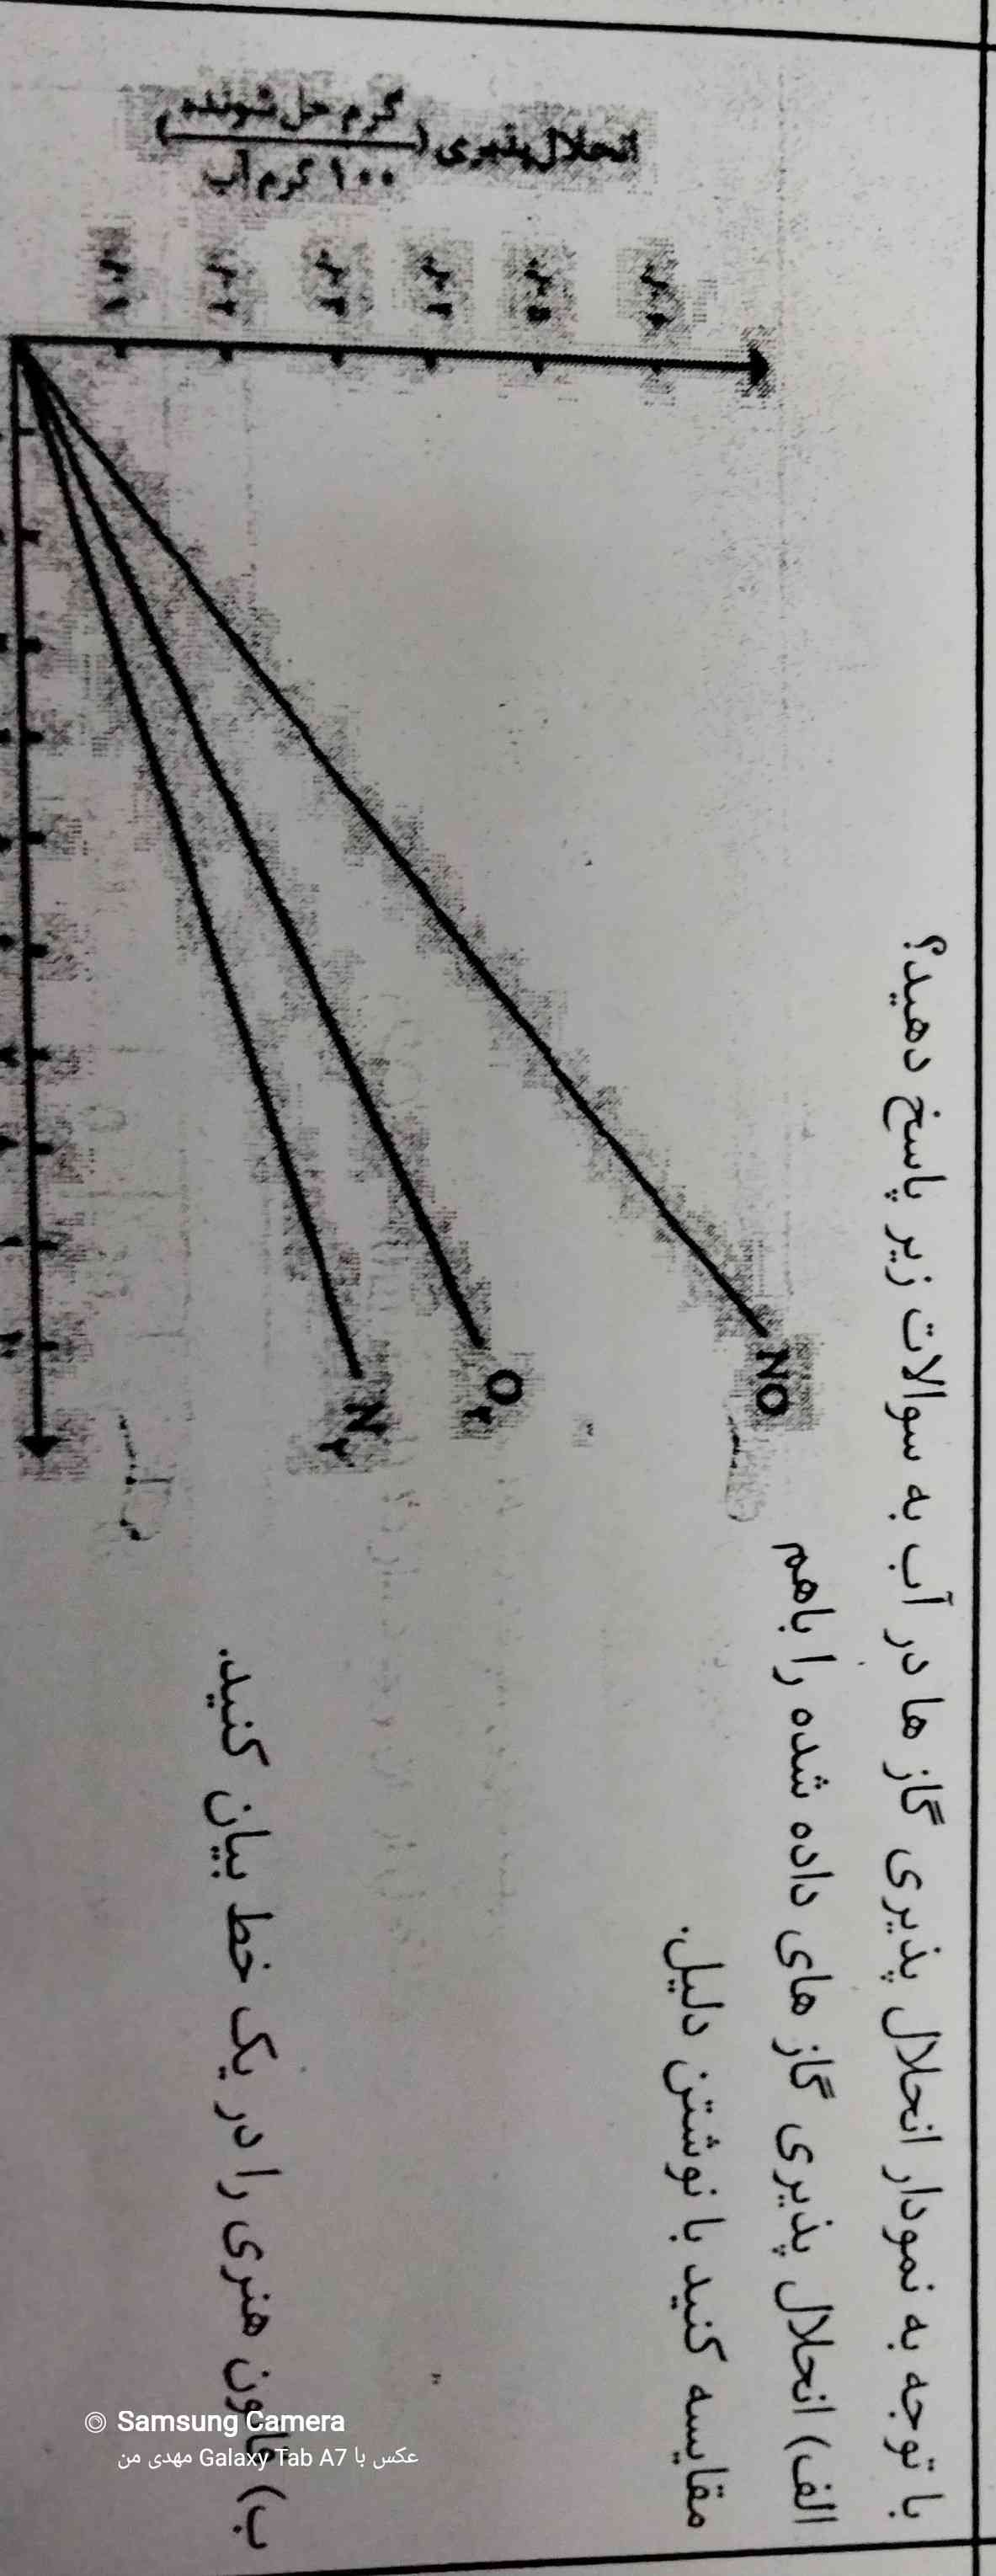 با توجه به نمودار انحلال پذیری گاز ها در آب به سوالات زیر پاسخ دهید؟
الف) انحلال پذیری گاز های داده شده را باهم
مقایسه کنید با نوشتن دلیل.
ب) قانون هنری را در یک خط بیان کنید.
انحلال‌پذیری (گرم حل شونده
۱۰۰ گرم آب)
NO
O₂
N₂
Samsung Camera
عکس با Galaxy Tab A7 مهدی من